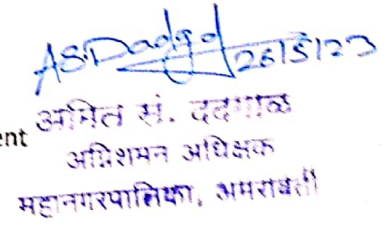 A.S.Dadgal 26/5/23
ent
अमित सं. ददगाळ
अग्निशमन अधिक्षक
महानगरपालिका, अमरावती